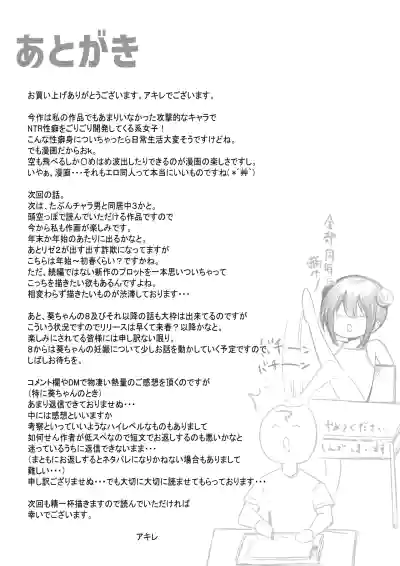 あとがき
お買い上げありがとうございます。アキレでございます。
今作は私の作品でもあまりいなかった攻撃的なキャラで
NTR性癖をごりごり開発してくる系女子！
こんな性癖身についちゃったら日常生活大変そうですけどね。
でも漫画だからおk。
空も飛べるしか〇めはめ波出したりできるのが漫画の楽しさですし。
いやぁ。漫画・・・それもエロ同人って本当にいいものですね(*´艸`)
次回の話。
次は、たぶんチャラ男と同居中3かと。
頭空っぽで読んでいただける作品ですので
今から私も作画が楽しみです。
年末か年始のあたりに出るかなと。
あとリゼ2が出す出す詐欺になってますが
こちらは年始～初春くらい？ですかね。
ただ、続編ではない新作のプロットを一本思いついちゃって
こっちを描きたい欲もあるんですよね。
相変わらず描きたいものが渋滞しております・・・
あと、葵ちゃんの8及びそれ以降の話も大枠は出来てるのですが
こういう状況ですのでリリースは早くて来春？以降かなと。
楽しみにされてる皆様には申し訳ない限り。
8からは葵ちゃんの妊娠について少しお話を動かしていく予定ですので、
しばしお待ちを。
コメント欄やDMで物凄い熱量のご感想を頂くのですが
(特に葵ちゃんのとき)
あまり返信できておりませぬ・・・
中には感想といいますか
考察といっていいようなハイレベルなものもありまして
如何せん作者が低スペなので短文でお返しするのも悪いかなと
迷っているうちに返信できないまま・・・
(まともにお返しするとネタバレになりかねない場合もありまして
難しい・・・)
申し訳ござりませぬ・・・でも大切に大切に読ませてもらっております・・・
次回も精一杯描きますので読んでいただければ
幸いでございます。
アキレ
バチーン
バチーン
やめてください